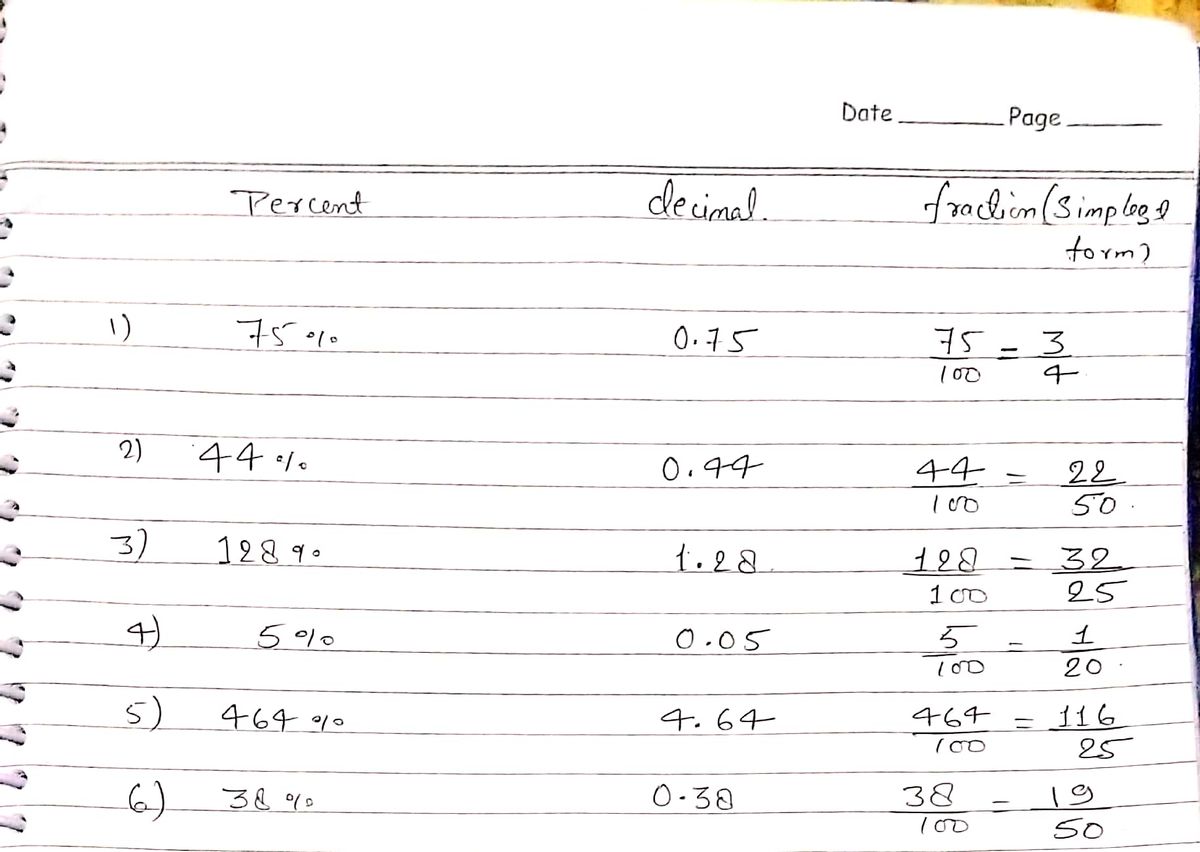 Date Page
Percent decimal. fraction (Simplest
form)
1) 75% 0.75 75/100 = 3/4
2) 44% 0.44 44/100 = 22/50.
3) 128% 1.28. 128/100 = 32/25
4) 5% 0.05 5/100 = 1/20.
5) 464% 4.64 464/100 = 116/25
6) 38% 0.38 38/100 = 19/50